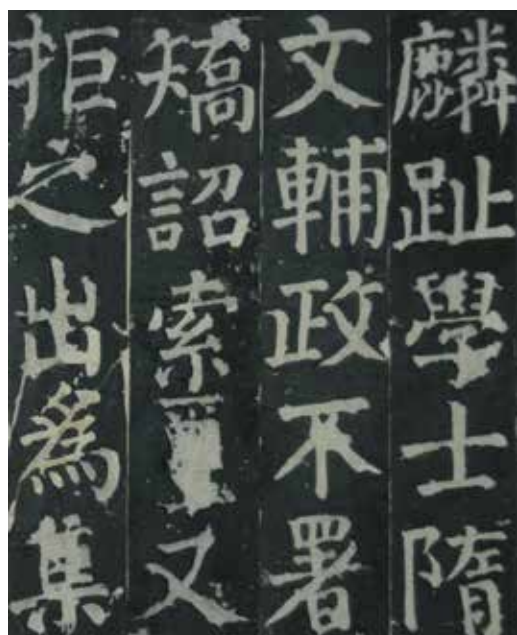 麟趾學士隋
文輔政不署
矯詔索璽又
拒之出為集